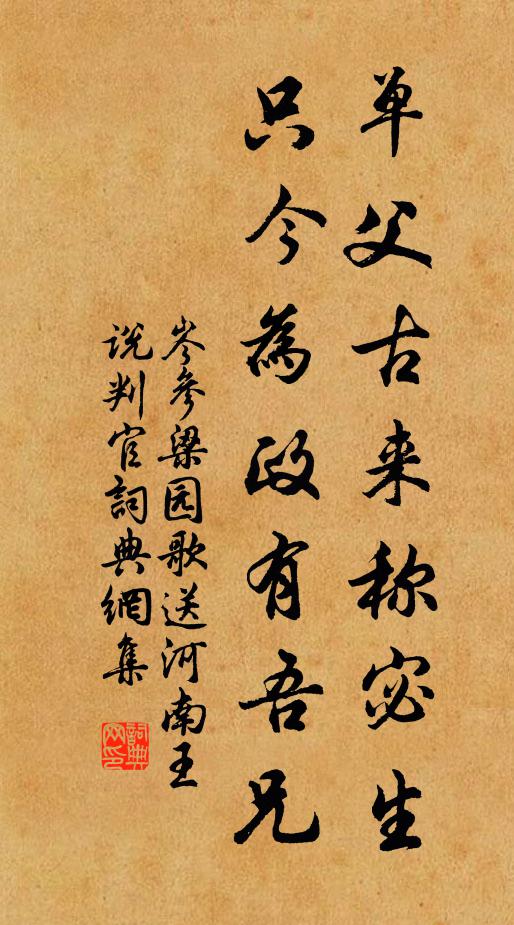 单父古来称宓生
只今為政有吾兄
岑参梁园歌送河南王
说判官詞典網集
詞典網印